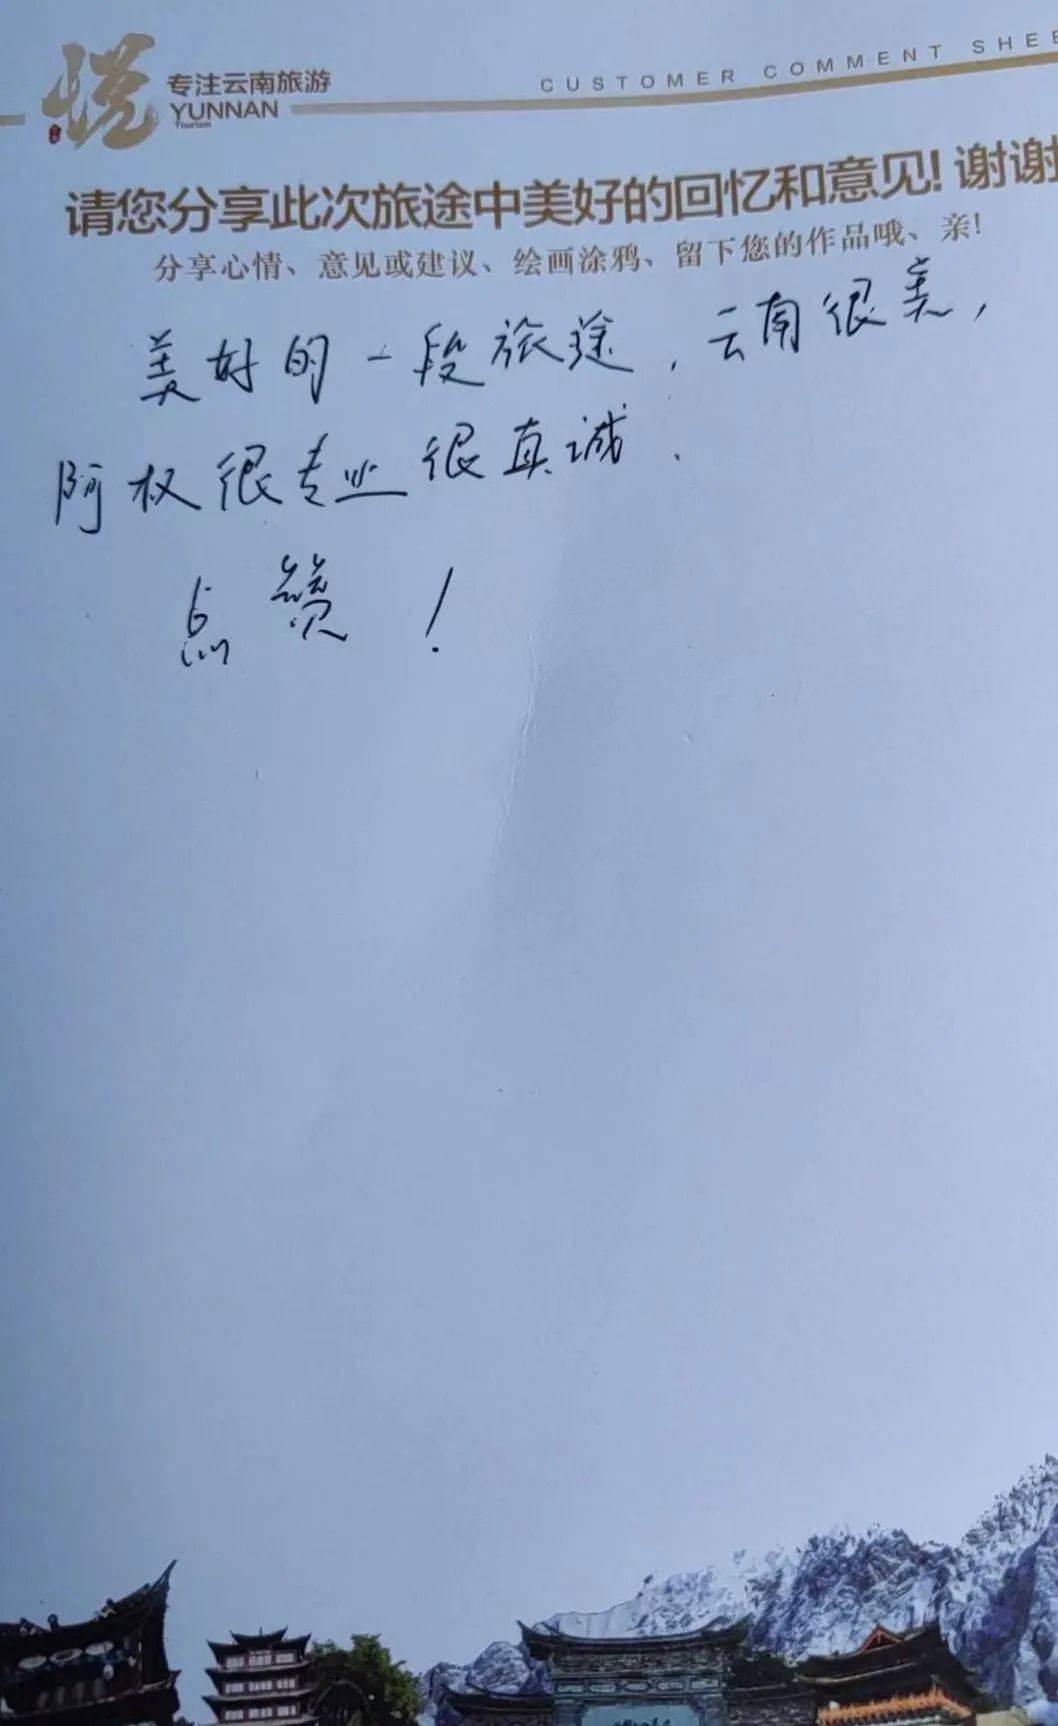 悦
专注云南旅游
YUNNAN
Tourism
CUSTOMER COMMENT SHEE
请您分享此次旅途中美好的回忆和意见!谢谢
分享心情、意见或建议、绘画涂鸦、留下您的作品哦、亲!
美好的一段旅途,云南很美,
阿权很专业很真诚.
点赞!